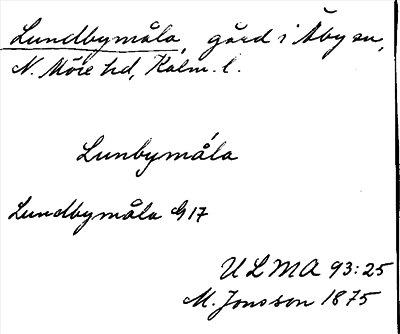 Lundbymåla, gård i Åby sn,
N. Möre hd, Kalm. l.
Lunbymåla
Lundbymåla G17
ULMA 93:25
M. Jonsson 1875